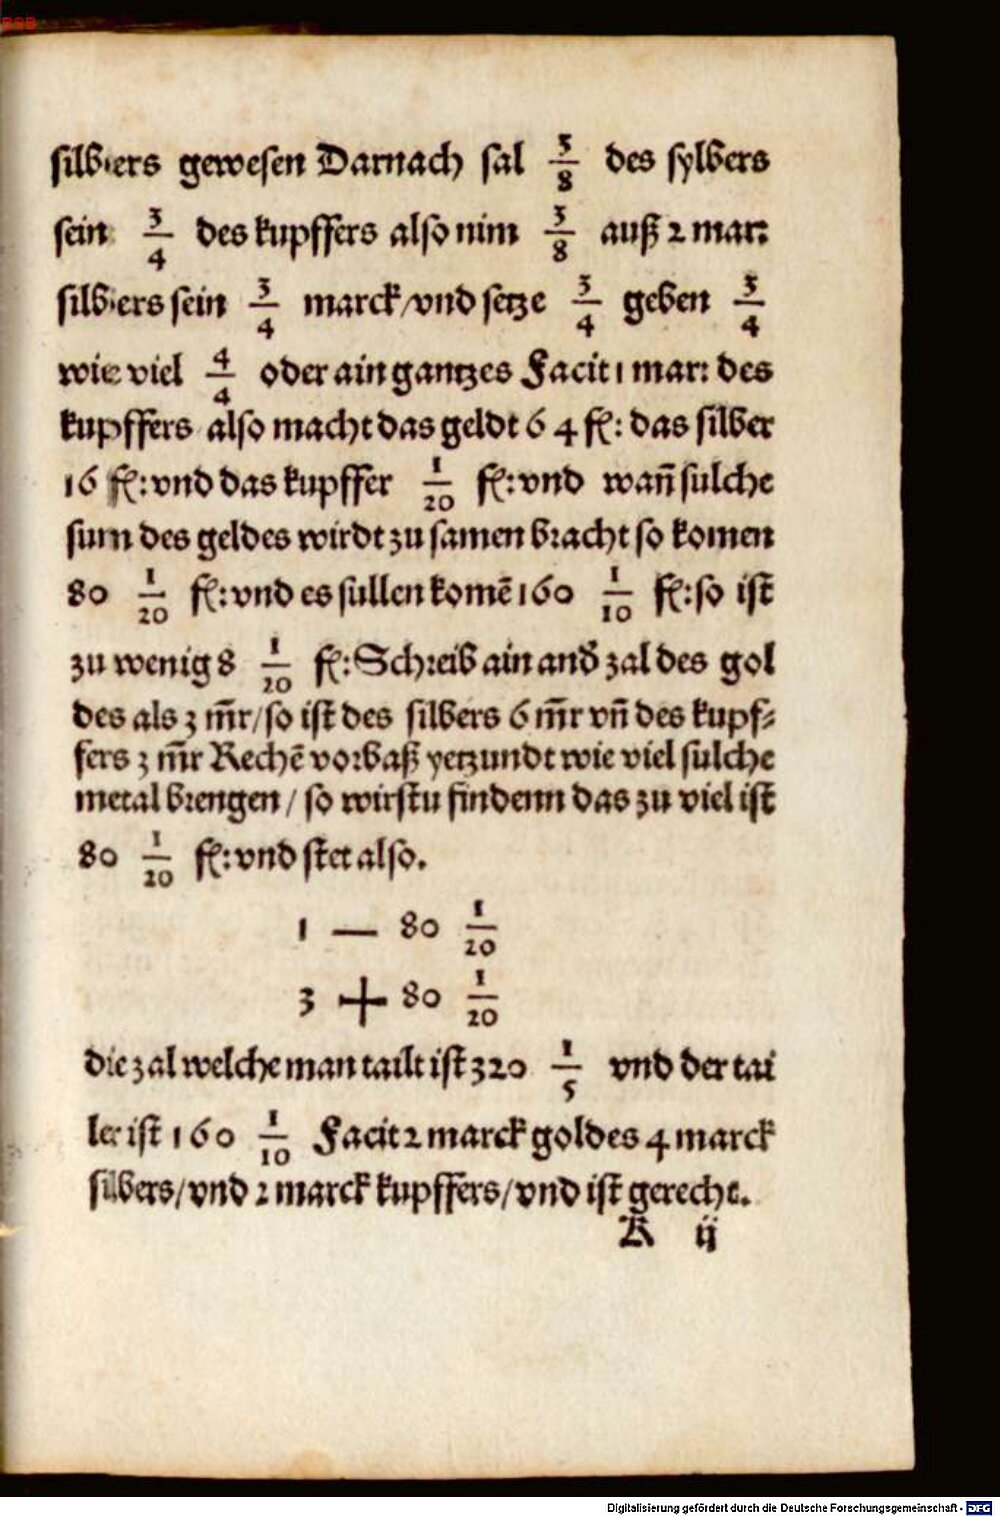 silbers gewesen Darnach sal 3/8 des sylbers
sein 3/4 des kupffers also nim 3/8 auß 2 mar:
silbers sein 3/4 marck/vnd setze 3/4 geben 3/4
wie viel 4/4 oder ain gantzes Facit 1 mar: des
kupffers also macht das geldt 64 fl: das silber
16 fl: vnd das kupffer 1/20 fl: vnd wañ sulche
sum des geldes wirdt zu samen bracht so komen
80 1/20 fl: vnd es sullen komē 160 1/10 fl: so ist
zu wenig 8 1/20 fl: Schreib ain and̄ zal des gol
des als 3 m̄r/so ist des silbers 6 m̄r vn̄ des kupf-
fers 3 m̄r Rechē vorbaß yetzundt wie viel sulche
metal brengen / so wirstu findenn das zu viel ist
80 1/20 fl: vnd stet also.
1 — 80 1/20
3 + 80 1/20
die zal welche man tailt ist 320 1/5 vnd der tai
ler ist 160 1/10 Facit 2 marck goldes 4 marck
silbers/vnd 2 marck kupffers/vnd ist gerecht.
K ij
Digitalisierung gefördert durch die Deutsche Forschungsgemeinschaft - DFG